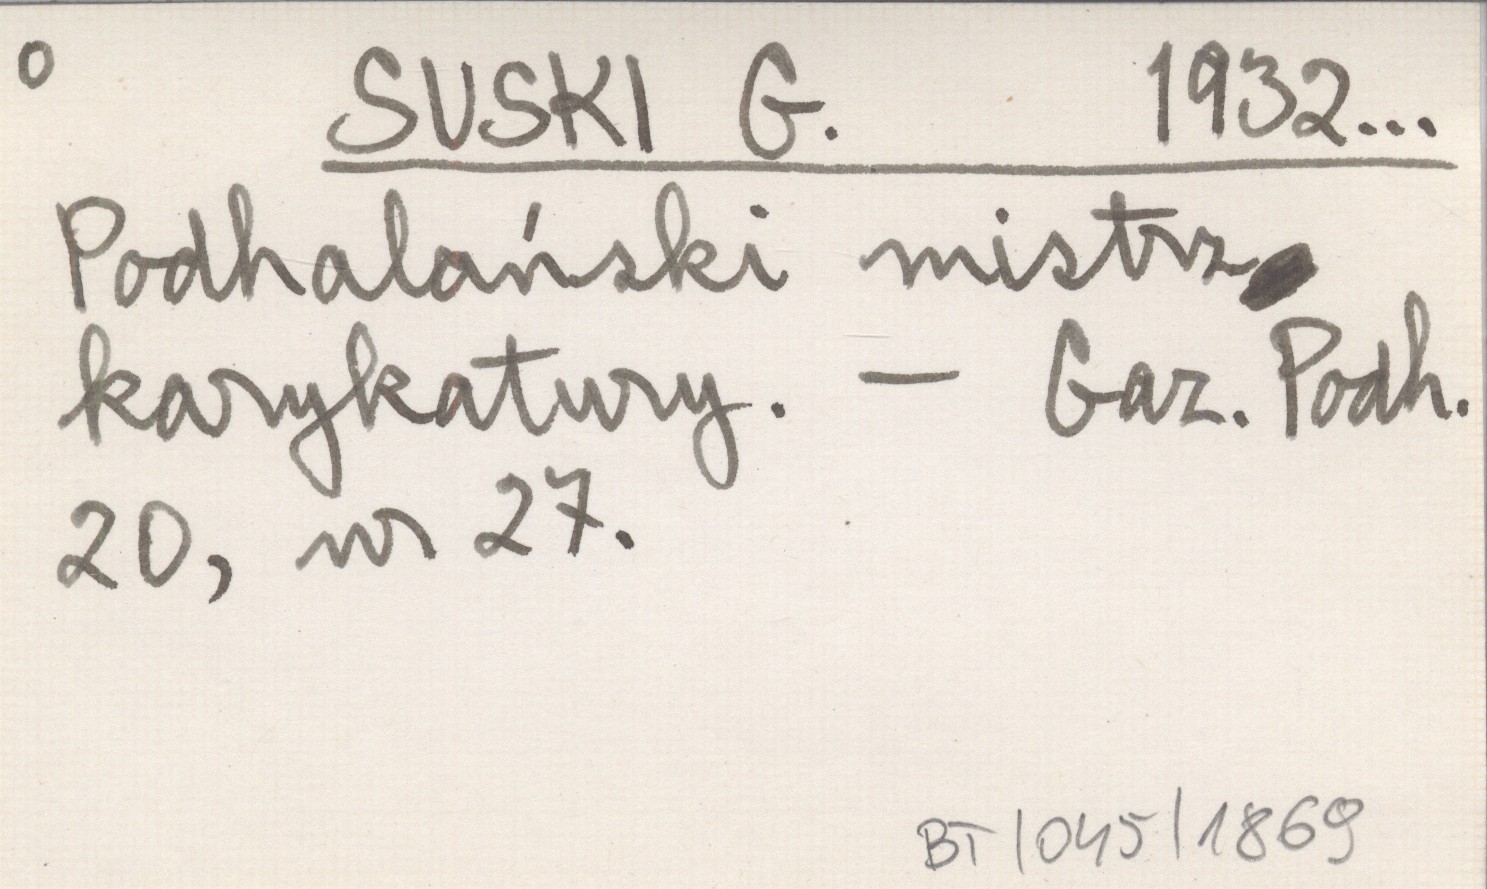 o SUSKI G. 1932...
Podhalański mistrz
karykatury. — Gaz. Podh.
20, nr 27.
BT/045/1869